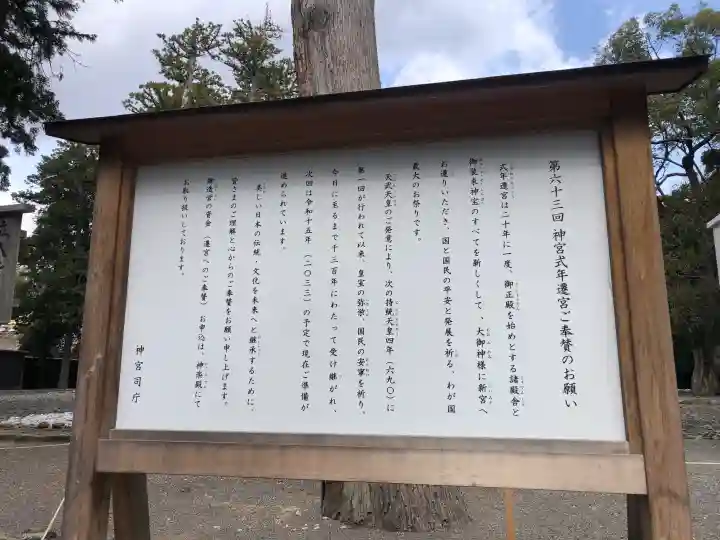 第六十三回 神宮式年遷宮ご奉賛のお願い
式年遷宮は二十年に一度、御正殿を始めとする諸殿舎と
御装束神宝のすべてを新しくして、大御神様に新宮へ
お遷りいただき、国と国民の平安と発展を祈る、わが国
最大のお祭りです。
天武天皇のご発意により、次の持統天皇四年(六九〇)に
第一回が行われて以来、皇室の弥栄、国民の安寧を祈り、
今日に至るまで千三百年にわたって受け継がれ、
次回は令和十五年(二〇三三)の予定で現在ご準備が
進められています。
美しい日本の伝統・文化を未来へと継承するために、
皆さまのご理解と心からのご奉賛をお願い申し上げます。
御造宮の資金(遷宮へのご奉賛)お申込は、神楽殿にて
お取り扱いしております。
神宮司庁